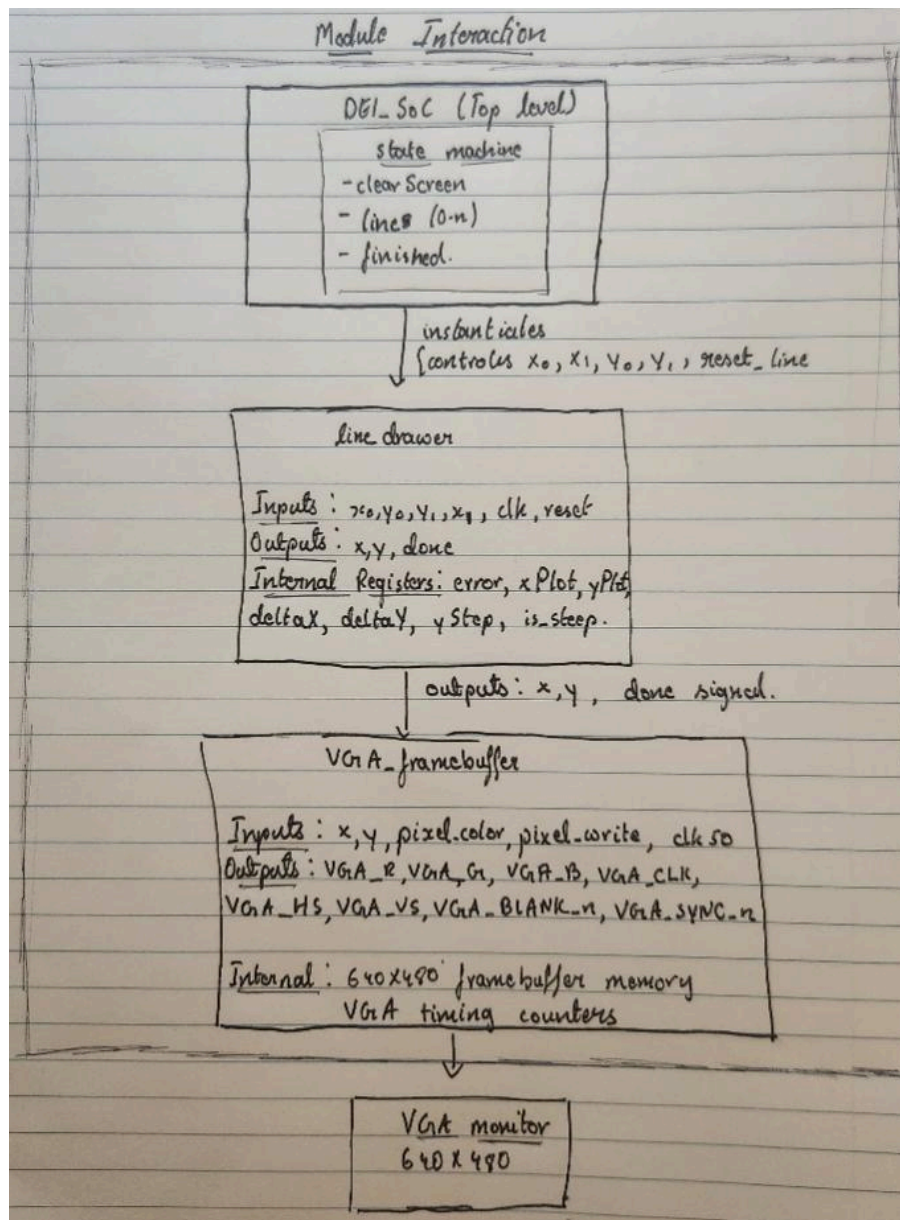 Module Interaction
DE1_SoC (Top level)
state machine
- clear Screen
- lines (0-n)
- finished.
instantiates
{controles x₀, x₁, y₀, y₁, reset_line
line drawer
Inputs: x₀, y₀, y₁, x₁, clk, reset
Outputs: x, y, done
Internal Registers: error, xPlot, yPlot,
deltaX, deltaY, yStep, is_steep.
outputs: x, y, done signal.
VGA_framebuffer
Inputs: x, y, pixel_color, pixel_write, clk50
Outputs: VGA_R, VGA_G, VGA_B, VGA_CLK,
VGA_HS, VGA_VS, VGA_BLANK_n, VGA_SYNC_n
Internal: 640x480 framebuffer memory
VGA timing counters
VGA monitor
640 X 480